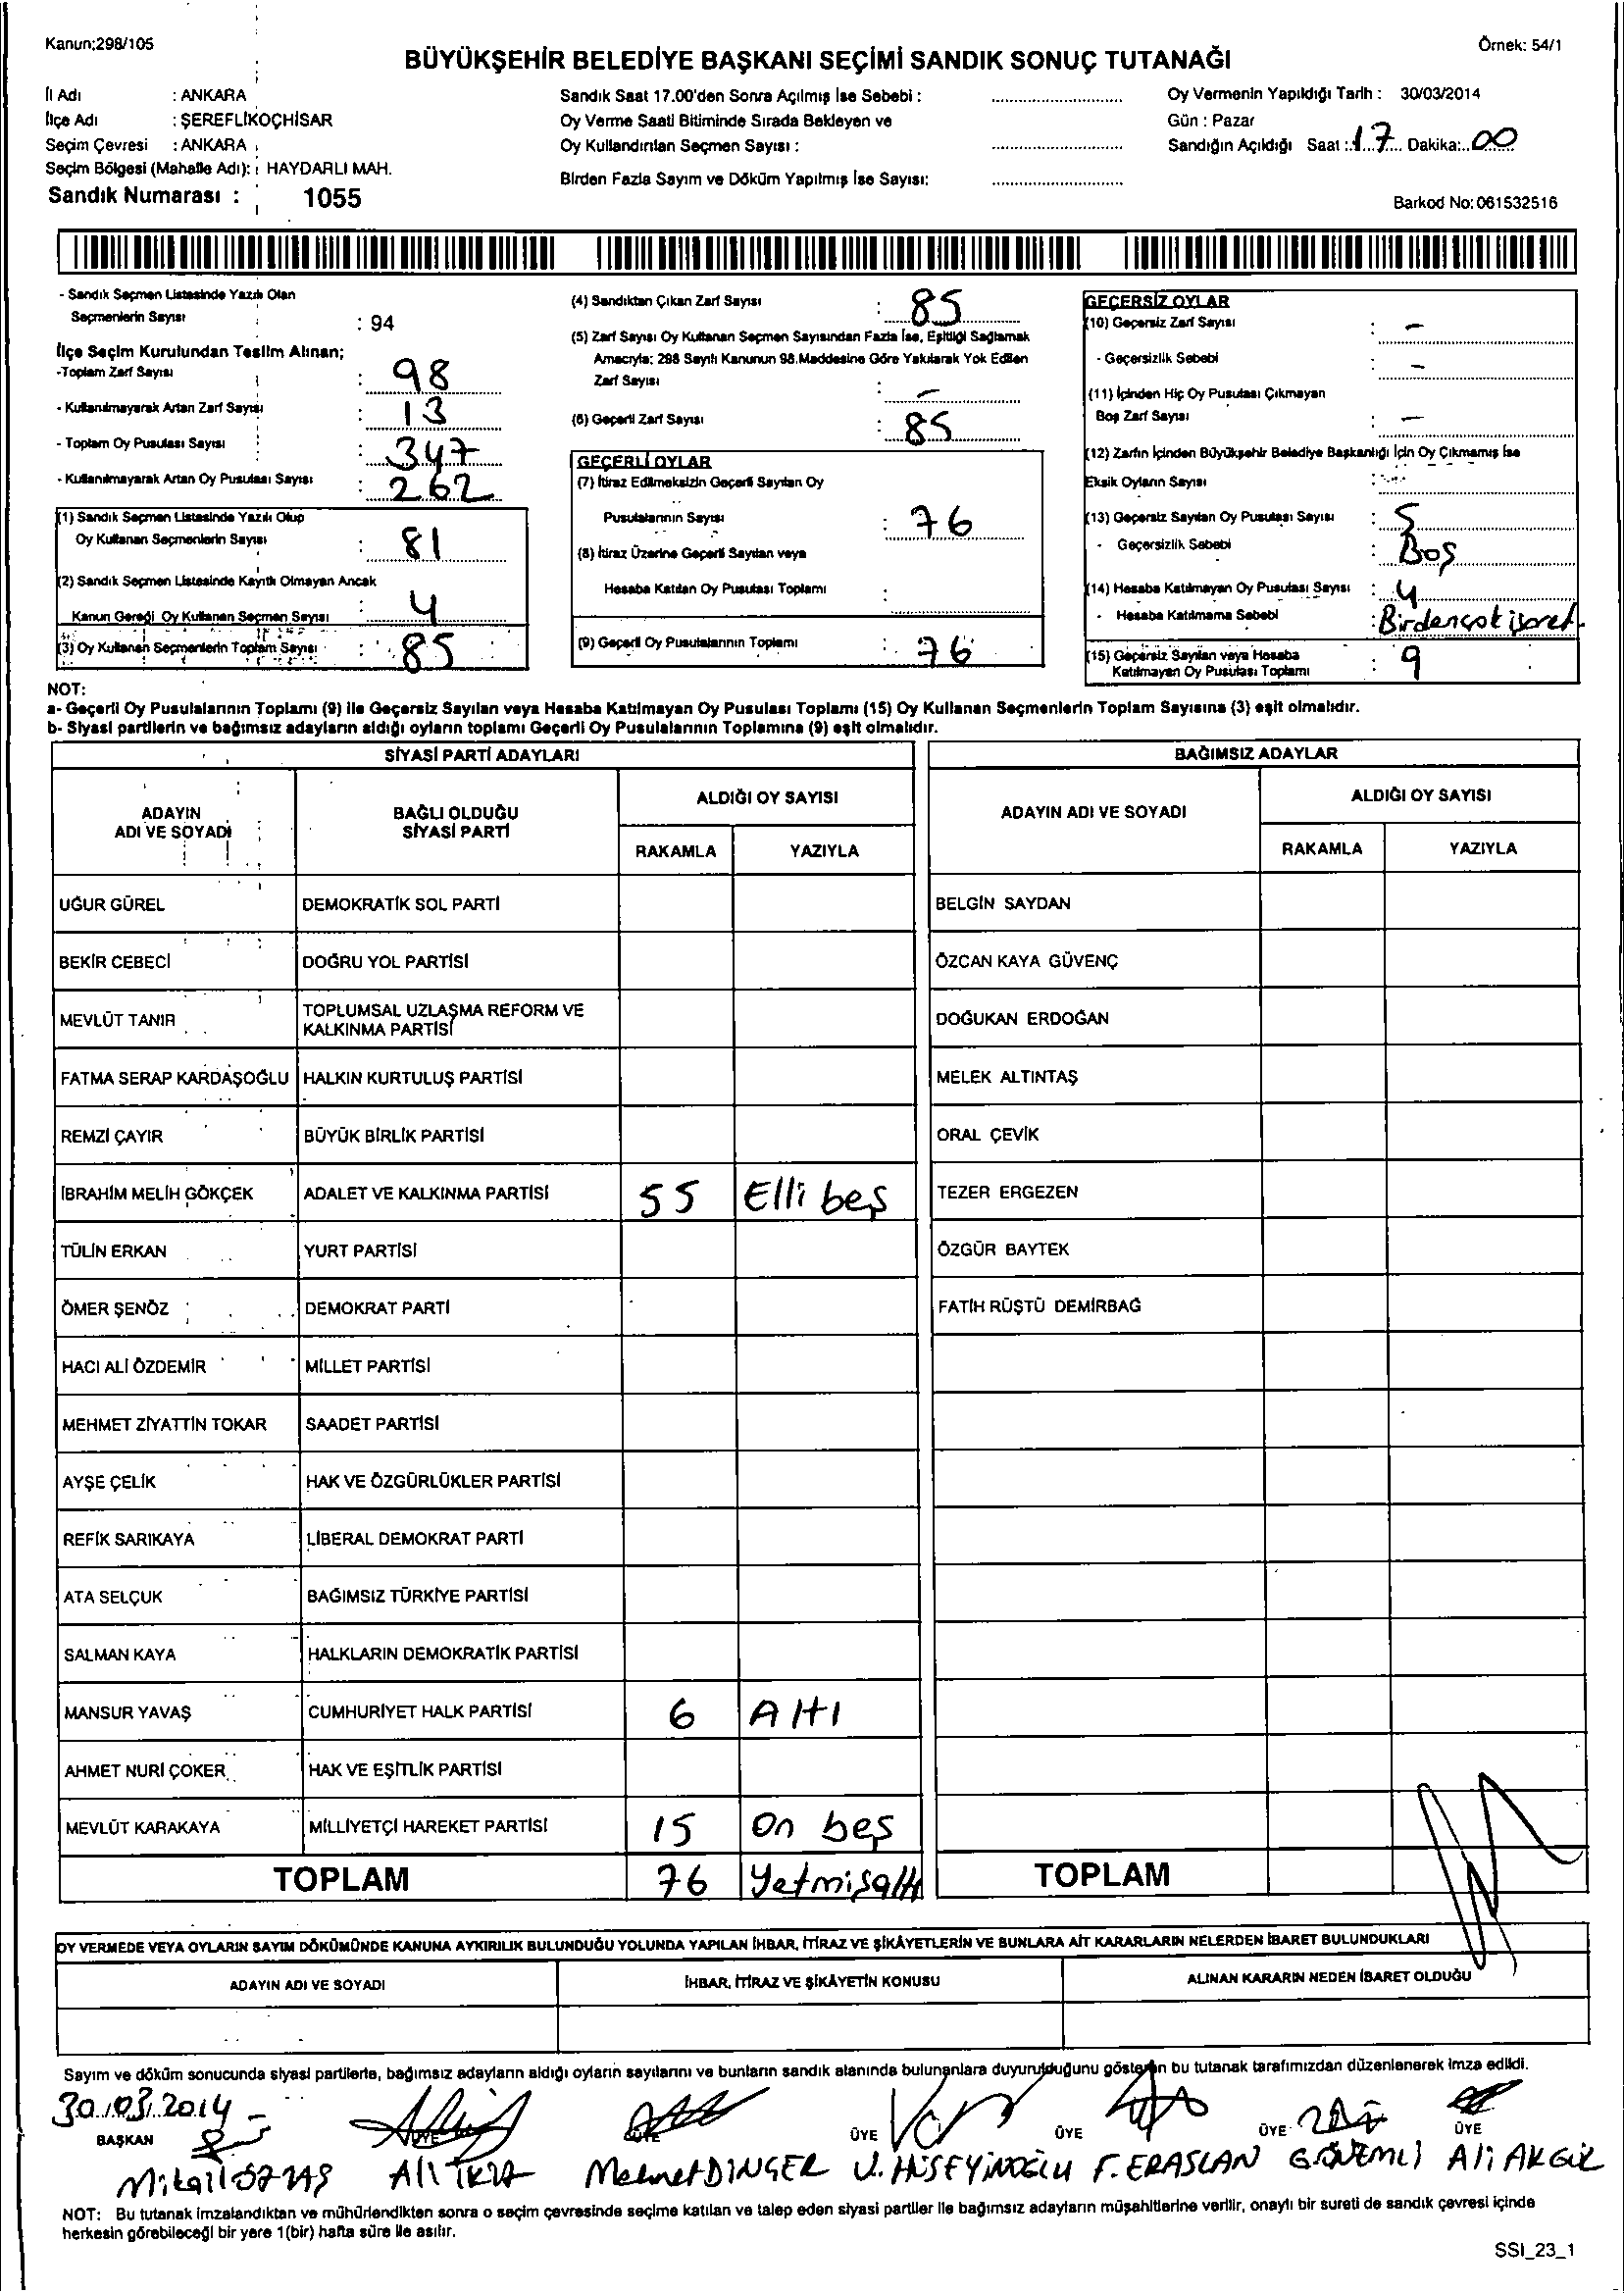 Kanun;298/105
Örnek: 54/1
BÜYÜKŞEHİR BELEDİYE BAŞKANI SEÇİMİ SANDIK SONUÇ TUTANAĞI
İl Adı : ANKARA
İlçe Adı : ŞEREFLİKOÇHİSAR
Seçim Çevresi : ANKARA
Seçim Bölgesi (Mahalle Adı): HAYDARLI MAH.
Sandık Numarası : 1055
Sandık Saat 17.00'den Sonra Açılmış İse Sebebi :
Oy Verme Saati Bitiminde Sırada Bekleyen ve
Oy Kullandırılan Seçmen Sayısı :
Birden Fazla Sayım ve Döküm Yapılmış İse Sayısı:
Oy Vermenin Yapıldığı Tarih : 30/03/2014
Gün : Pazar
Sandığın Açıldığı Saat : 17 Dakika: 00
Barkod No: 061532516
- Sandık Seçmen Listesinde Yazılı Olan
Seçmenlerin Sayısı : 94
İlçe Seçim Kurulundan Teslim Alınan;
-Toplam Zarf Sayısı : 98
- Kullanılmayarak Artan Zarf Sayısı : 13
- Toplam Oy Pusulası Sayısı : 347
- Kullanılmayarak Artan Oy Pusulası Sayısı : 262
(1) Sandık Seçmen Listesinde Yazılı Olup
Oy Kullanan Seçmenlerin Sayısı : 81
(2) Sandık Seçmen Listesinde Kayıtlı Olmayan Ancak
Kanun Gereği Oy Kullanan Seçmen Sayısı : 4
(3) Oy Kullanan Seçmenlerin Toplam Sayısı : 85
(4) Sandıktan Çıkan Zarf Sayısı : 85
(5) Zarf Sayısı Oy Kullanan Seçmen Sayısından Fazla İse, Eşitliği Sağlamak
Amacıyla; 298 Sayılı Kanunun 98.Maddesine Göre Yakılarak Yok Edilen
Zarf Sayısı : -
(6) Geçerli Zarf Sayısı : 85
GEÇERLİ OYLAR
(7) İtiraz Edilmeksizin Geçerli Sayılan Oy
Pusulalarının Sayısı : 76
(8) İtiraz Üzerine Geçerli Sayılan veya
Hesaba Katılan Oy Pusulası Toplamı :
(9) Geçerli Oy Pusulalarının Toplamı : 76
GEÇERSİZ OYLAR
(10) Geçersiz Zarf Sayısı : -
- Geçersizlik Sebebi : -
(11) İçinden Hiç Oy Pusulası Çıkmayan
Boş Zarf Sayısı : -
(12) Zarfın İçinden Büyükşehir Belediye Başkanlığı İçin Oy Çıkmamış İse
Eksik Oyların Sayısı :
(13) Geçersiz Sayılan Oy Pusulası Sayısı : 5
- Geçersizlik Sebebi : Boş
(14) Hesaba Katılmayan Oy Pusulası Sayısı : 4
- Hesaba Katılmama Sebebi : Birden çok işaret
(15) Geçersiz Sayılan veya Hesaba
Katılmayan Oy Pusulası Toplamı : 9
NOT:
a- Geçerli Oy Pusulalarının Toplamı (9) ile Geçersiz Sayılan veya Hesaba Katılmayan Oy Pusulası Toplamı (15) Oy Kullanan Seçmenlerin Toplam Sayısına (3) eşit olmalıdır.
b- Siyasi partilerin ve bağımsız adayların aldığı oyların toplamı Geçerli Oy Pusulalarının Toplamına (9) eşit olmalıdır.
SİYASİ PARTİ ADAYLARI
ADAYIN ADI VE SOYADI BAĞLI OLDUĞU SİYASİ PARTİ ALDIĞI OY SAYISI
RAKAMLA YAZIYLA
UĞUR GÜREL DEMOKRATİK SOL PARTİ
BEKİR CEBECİ DOĞRU YOL PARTİSİ
MEVLÜT TANIR TOPLUMSAL UZLAŞMA REFORM VE KALKINMA PARTİSİ
FATMA SERAP KARDAŞOĞLU HALKIN KURTULUŞ PARTİSİ
REMZİ ÇAYIR BÜYÜK BİRLİK PARTİSİ
İBRAHİM MELİH GÖKÇEK ADALET VE KALKINMA PARTİSİ 55 Elli beş
TÜLİN ERKAN YURT PARTİSİ
ÖMER ŞENÖZ DEMOKRAT PARTİ
HACI ALİ ÖZDEMİR MİLLET PARTİSİ
MEHMET ZİYATTİN TOKAR SAADET PARTİSİ
AYŞE ÇELİK HAK VE ÖZGÜRLÜKLER PARTİSİ
REFİK SARIKAYA LİBERAL DEMOKRAT PARTİ
ATA SELÇUK BAĞIMSIZ TÜRKİYE PARTİSİ
SALMAN KAYA HALKLARIN DEMOKRATİK PARTİSİ
MANSUR YAVAŞ CUMHURİYET HALK PARTİSİ 6 Altı
AHMET NURİ ÇOKER HAK VE EŞİTLİK PARTİSİ
MEVLÜT KARAKAYA MİLLİYETÇİ HAREKET PARTİSİ 15 On beş
TOPLAM 76 Yetmişaltı
BAĞIMSIZ ADAYLAR
ADAYIN ADI VE SOYADI ALDIĞI OY SAYISI
RAKAMLA YAZIYLA
BELGİN SAYDAN
ÖZCAN KAYA GÜVENÇ
DOĞUKAN ERDOĞAN
MELEK ALTINTAŞ
ORAL ÇEVİK
TEZER ERGEZEN
ÖZGÜR BAYTEK
FATİH RÜŞTÜ DEMİRBAĞ
TOPLAM
OY VERMEDE VEYA OYLARIN SAYIM DÖKÜMÜNDE KANUNA AYKIRILIK BULUNDUĞU YOLUNDA YAPILAN İHBAR, İTİRAZ VE ŞİKÂYETLERİN VE BUNLARA AİT KARARLARIN NELERDEN İBARET BULUNDUKLARI
ADAYIN ADI VE SOYADI İHBAR, İTİRAZ VE ŞİKÂYETİN KONUSU ALINAN KARARIN NEDEN İBARET OLDUĞU
Sayım ve döküm sonucunda siyasi partilerle, bağımsız adayların aldığı oyların sayılarını ve bunların sandık alanında bulunanlara duyurulduğunu gösteren bu tutanak tarafımızdan düzenlenerek imza edildi.
30.03.2014
BAŞKAN ÜYE ÜYE ÜYE ÜYE ÜYE ÜYE
Mikail Ali Mehmet DİNÇER V. HÜSEYİNOĞLU F. ERASLAN G. ÖNEMLİ Ali AKGÜL
NOT: Bu tutanak imzalandıktan ve mühürlendikten sonra o seçim çevresinde seçime katılan ve talep eden siyasi partiler ile bağımsız adayların müşahitlerine verilir, onaylı bir sureti de sandık çevresi içinde
herkesin görebileceği bir yere 1(bir) hafta süre ile asılır.
SSI_23_1